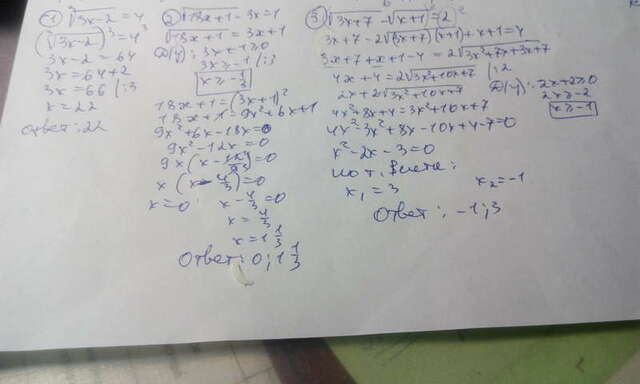 ① ∛3x-2 = 4
(∛3x-2)³ = 4³
3x-2 = 64
3x = 64+2
3x = 66 |:3
x = 22
Ответ: 22
② √18x+1 - 3x = 1
√18x+1 = 3x+1
Д(у): 3x+1≥0
3x ≥ -1 |:3
x ≥ -1/3
18x+1 = (3x+1)²
18x+1 = 9x²+6x+1
9x²+6x-18x=0
9x²-12x=0
x(x-4/3)=0
x=0; x-4/3=0
x=4/3
x=1 1/3
Ответ: 0; 1 1/3
③ √3x+7 - √x+1 = 2
3x+7-2√(3x+7)(x+1)+x+1=4
3x+7+x+1-4=2√3x²+7x+3x+7
4x+4=2√3x²+10x+7 |:2
2x+2√3x²+10x+7
Д(у): 2x+2≥0
2x≥-2
x≥-1
4x²+8x+4=3x²+10x+7
4x²-3x²+8x-10x+4-7=0
x²-2x-3=0
по т. Виета:
x₁=3 x₂=-1
Ответ: -1; 3